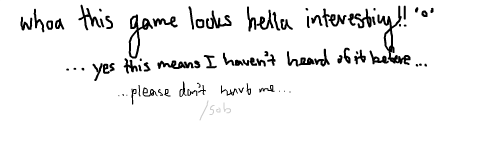 whoa this game looks hella interesting!! 'o'
... yes this means I haven't heard of it before...
...please don't hurt me...
/sob